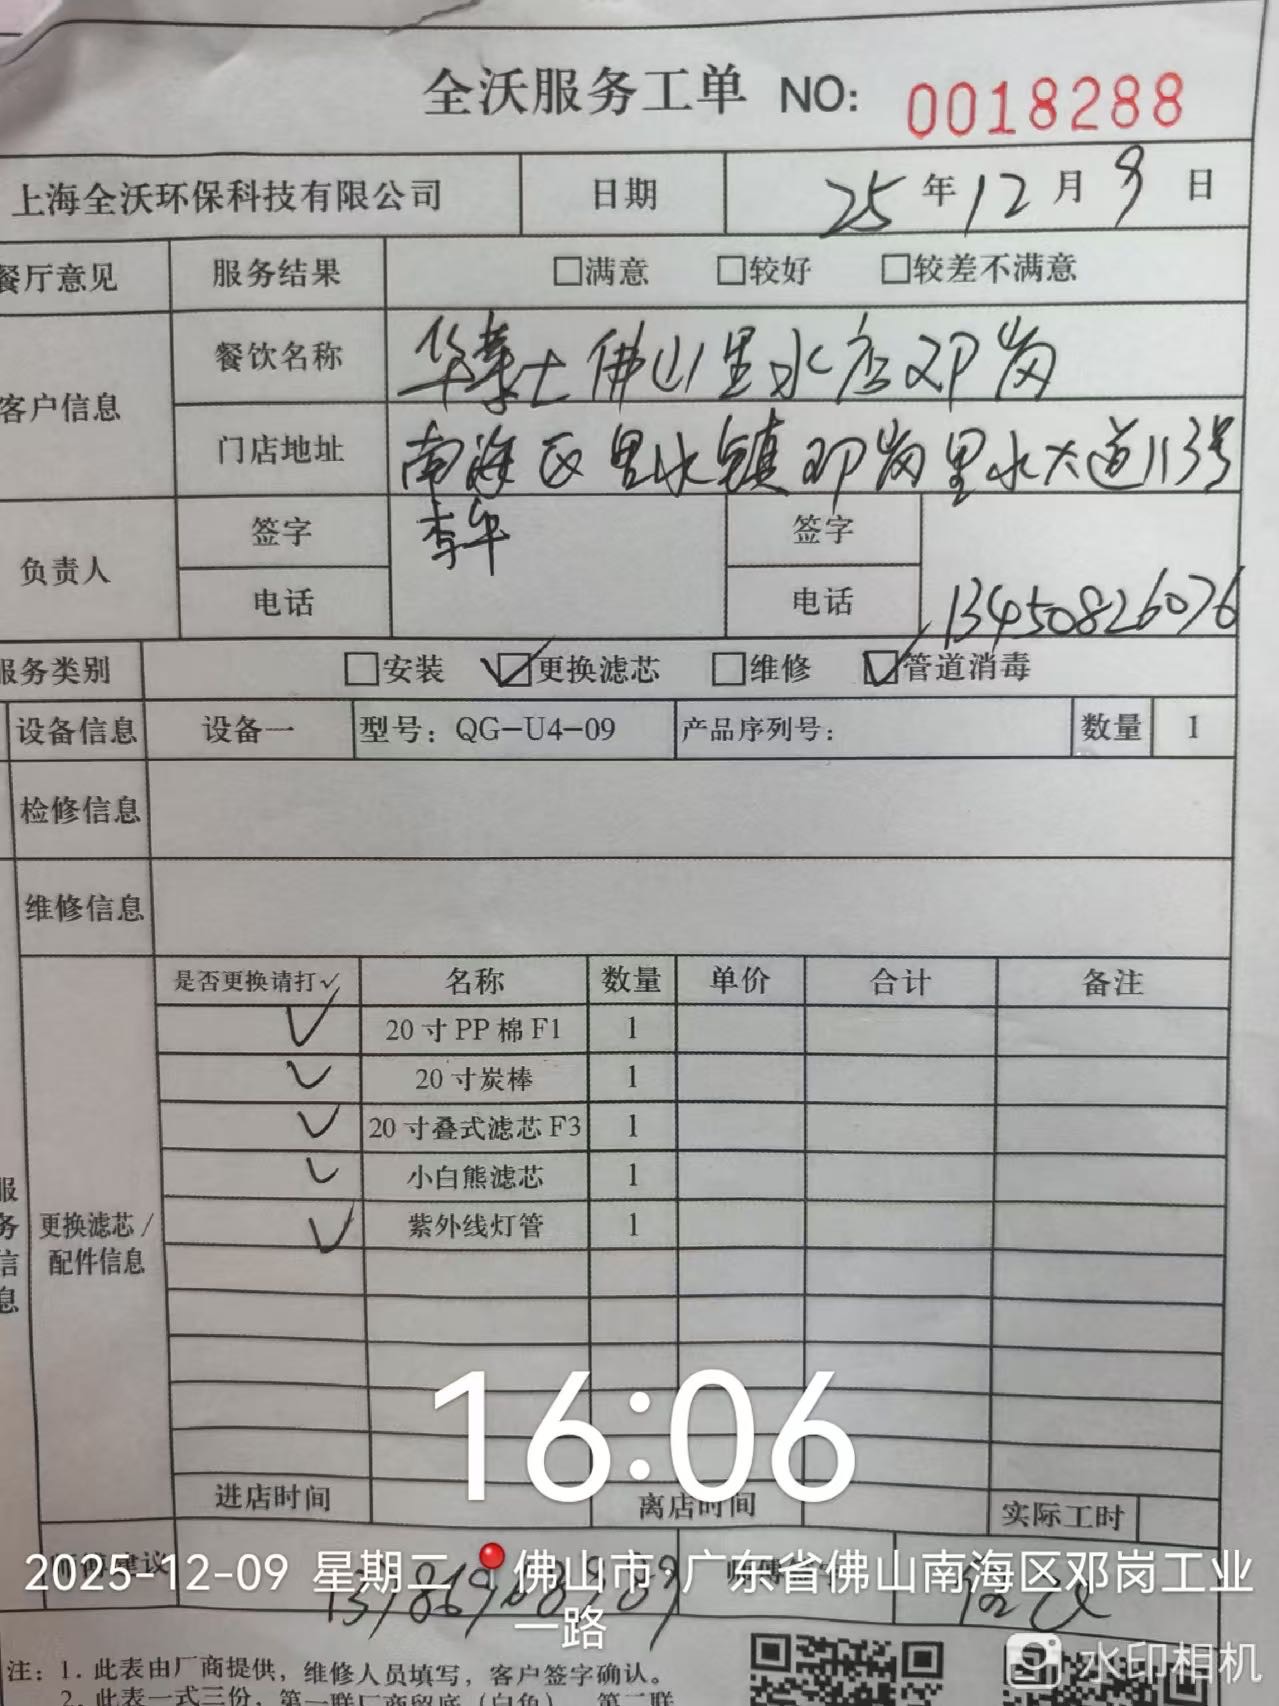 全沃服务工单 NO: 0018288
上海全沃环保科技有限公司 日期 25年12月9日
餐厅意见 服务结果 □满意 □较好 □较差不满意
客户信息 餐饮名称 华莱士佛山里水店邓岗
门店地址 南海区里水镇邓岗里水大道113号
负责人 签字 签字
电话 电话 13450826076
服务类别 □安装 ☑更换滤芯 □维修 ☑管道消毒
设备信息 设备一 型号：QG-U4-09 产品序列号： 数量 1
检修信息
维修信息
是否更换请打✓ 名称 数量 单价 合计 备注
✓ 20寸PP棉F1 1
✓ 20寸炭棒 1
✓ 20寸叠式滤芯F3 1
✓ 小白熊滤芯 1
✓ 紫外线灯管 1
服务信息
更换滤芯/
配件信息
16:06
进店时间 离店时间 实际工时
2025-12-09 星期二 佛山市·广东省佛山南海区邓岗工业
一路
水印相机
注：1. 此表由厂商提供，维修人员填写，客户签字确认。
2. 此表一式三份，第一联厂商留底（白色） 第二联